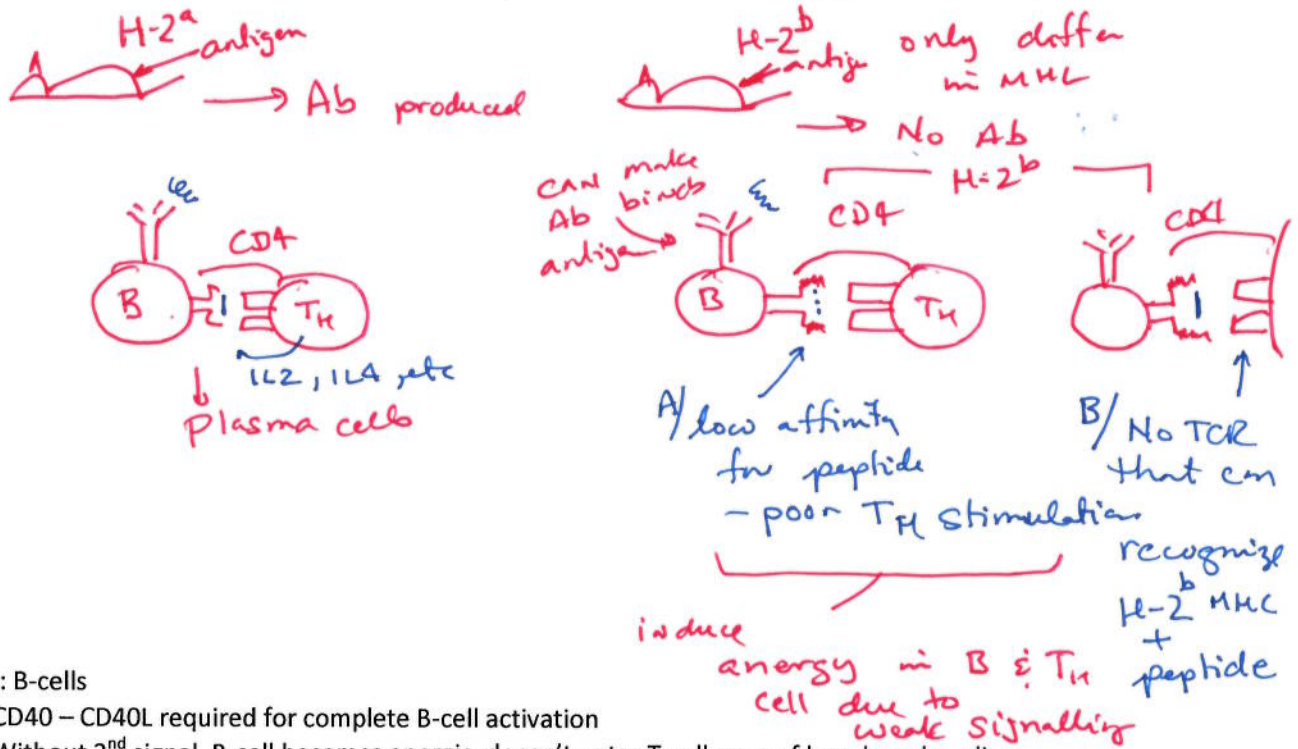 H-2a
antigen
→ Ab produced
B
CD4
TH
IL2, IL4, etc
Plasma cells
H-2b
antige
only differ
in MHC
→ No Ab
H-2b
CAN make
Ab binds
antigen
B
CD4
TH
A/ low affinity
for peptide
- poor TH stimulation
CD4
B/ No TCR
that can
recognize
H-2b MHC
+
peptide
induce
anergy in B & TH
cell due to
weak signalling
: B-cells
CD40 – CD40L required for complete B-cell activation